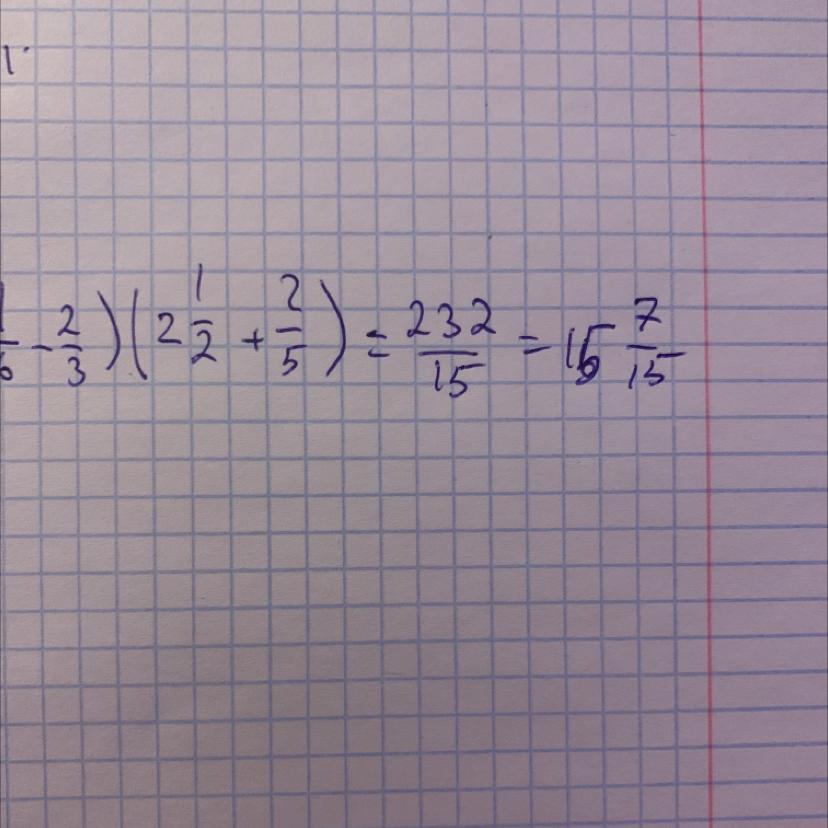 1.
1/6 - 2/3)(2 1/2 + 2/5) = 232/15 = 15 7/15